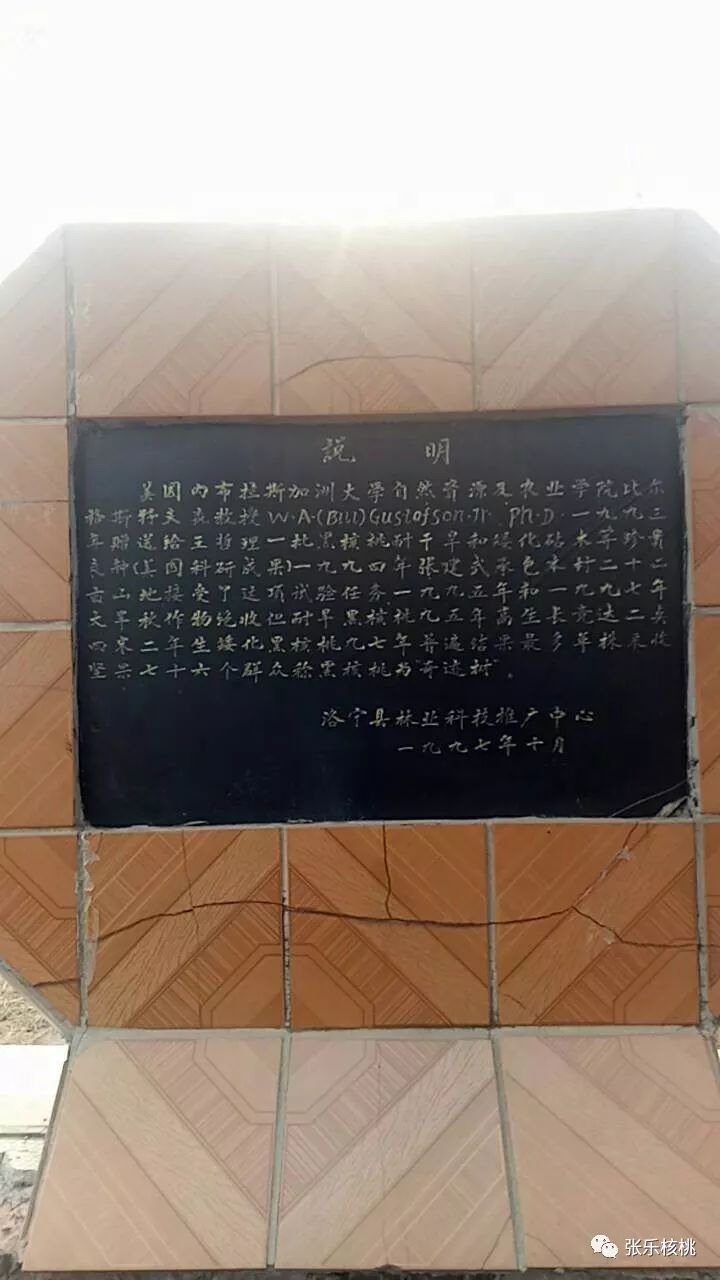 説 明
美国内布拉斯加洲大学自然资源及农业学院比尔
格斯特夫森教授W·A·(Bill)Gustofson.Jr. Ph.D.一九九三
年赠送给王哲理一批黑核桃耐干旱和矮化砧木等珍贵
良种(美国科研成果)一九九四年张建武承包本村二十二
亩山地接受了这项试验任务一九九五年和一九九七年
大旱秋作物绝收但耐旱黑核桃九五年高生长竟达二点
四米二年生矮化黑核桃九七年普遍结果最多单株采收
坚果七十六个群众称黑核桃为"奇迹树"。
洛宁县林业科技推广中心
一九九七年十月
张乐核桃